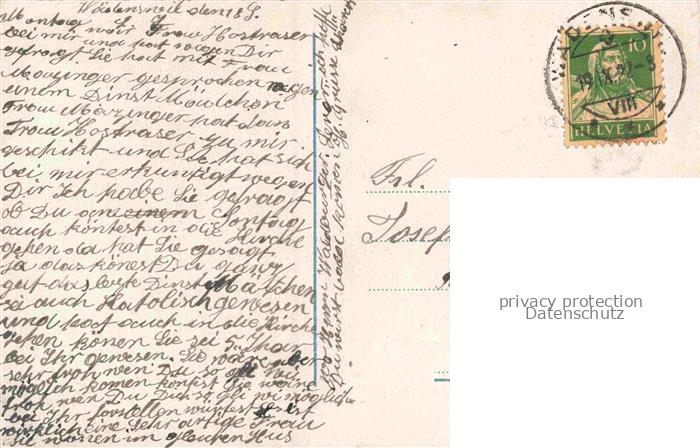 Wädenswil den 18 S.
Montag war Frau Hostraser
bei mir und hat wegen Dir
gefragt. Sie hat mit Frau
Mozinger gesprochen wegen
einem Dinst Mädchen
Frau Mozinger hat dans
Frau Hostraser zu mir
geschikt und Sie hat sich
bei mir erkuntigt wegen
Dir Ich habe Sie gefragt
ob Du an einem Sontag
auch köntest in die Kirche
gehen da hat Sie gesagt
ja das könest Du ganz
gut das lezte Dinst Mätchen
sei auch Katolisch gewesen
und hat auch in die Kirche
gehen könen Sie sei 5 Jhar
bei Ihr gewesen. Sie wäre aber
sehr froh wen Du so
möglich komen köntst Sie wäre
froh wen Du Dich so möglich
bei Ihr forstellen würtest Es ist
wirklich eine sehr artige Frau
Sie wonen im Haus
Herrn
Du wirst komen
Frl.
Josef
WÄDENSWIL
19. IX. 22 - 8
VIII
10
HELVETIA
privacy protection
Datenschutz